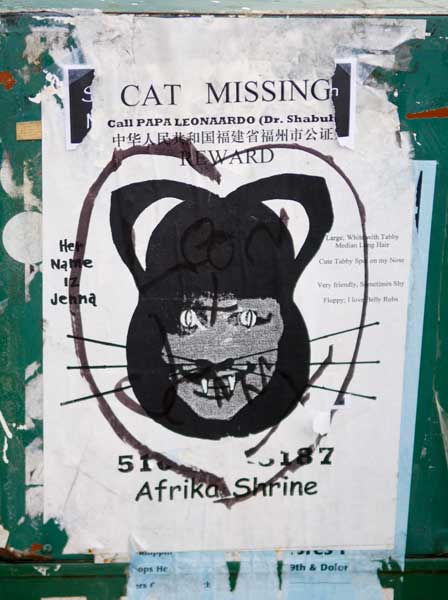 CAT MISSING
Call PAPA LEONAARDO (Dr. Shabuh
中华人民共和国福建省福州市公证
REWARD
Her
Name
iz
Jenna
Large, White with Tabby
Median Long Hair
Cute Tabby Spot on my Nose
Very friendly, Sometimes Shy
Floppy; I love Belly Rubs
187
Afrika Shrine
9th & Dolor